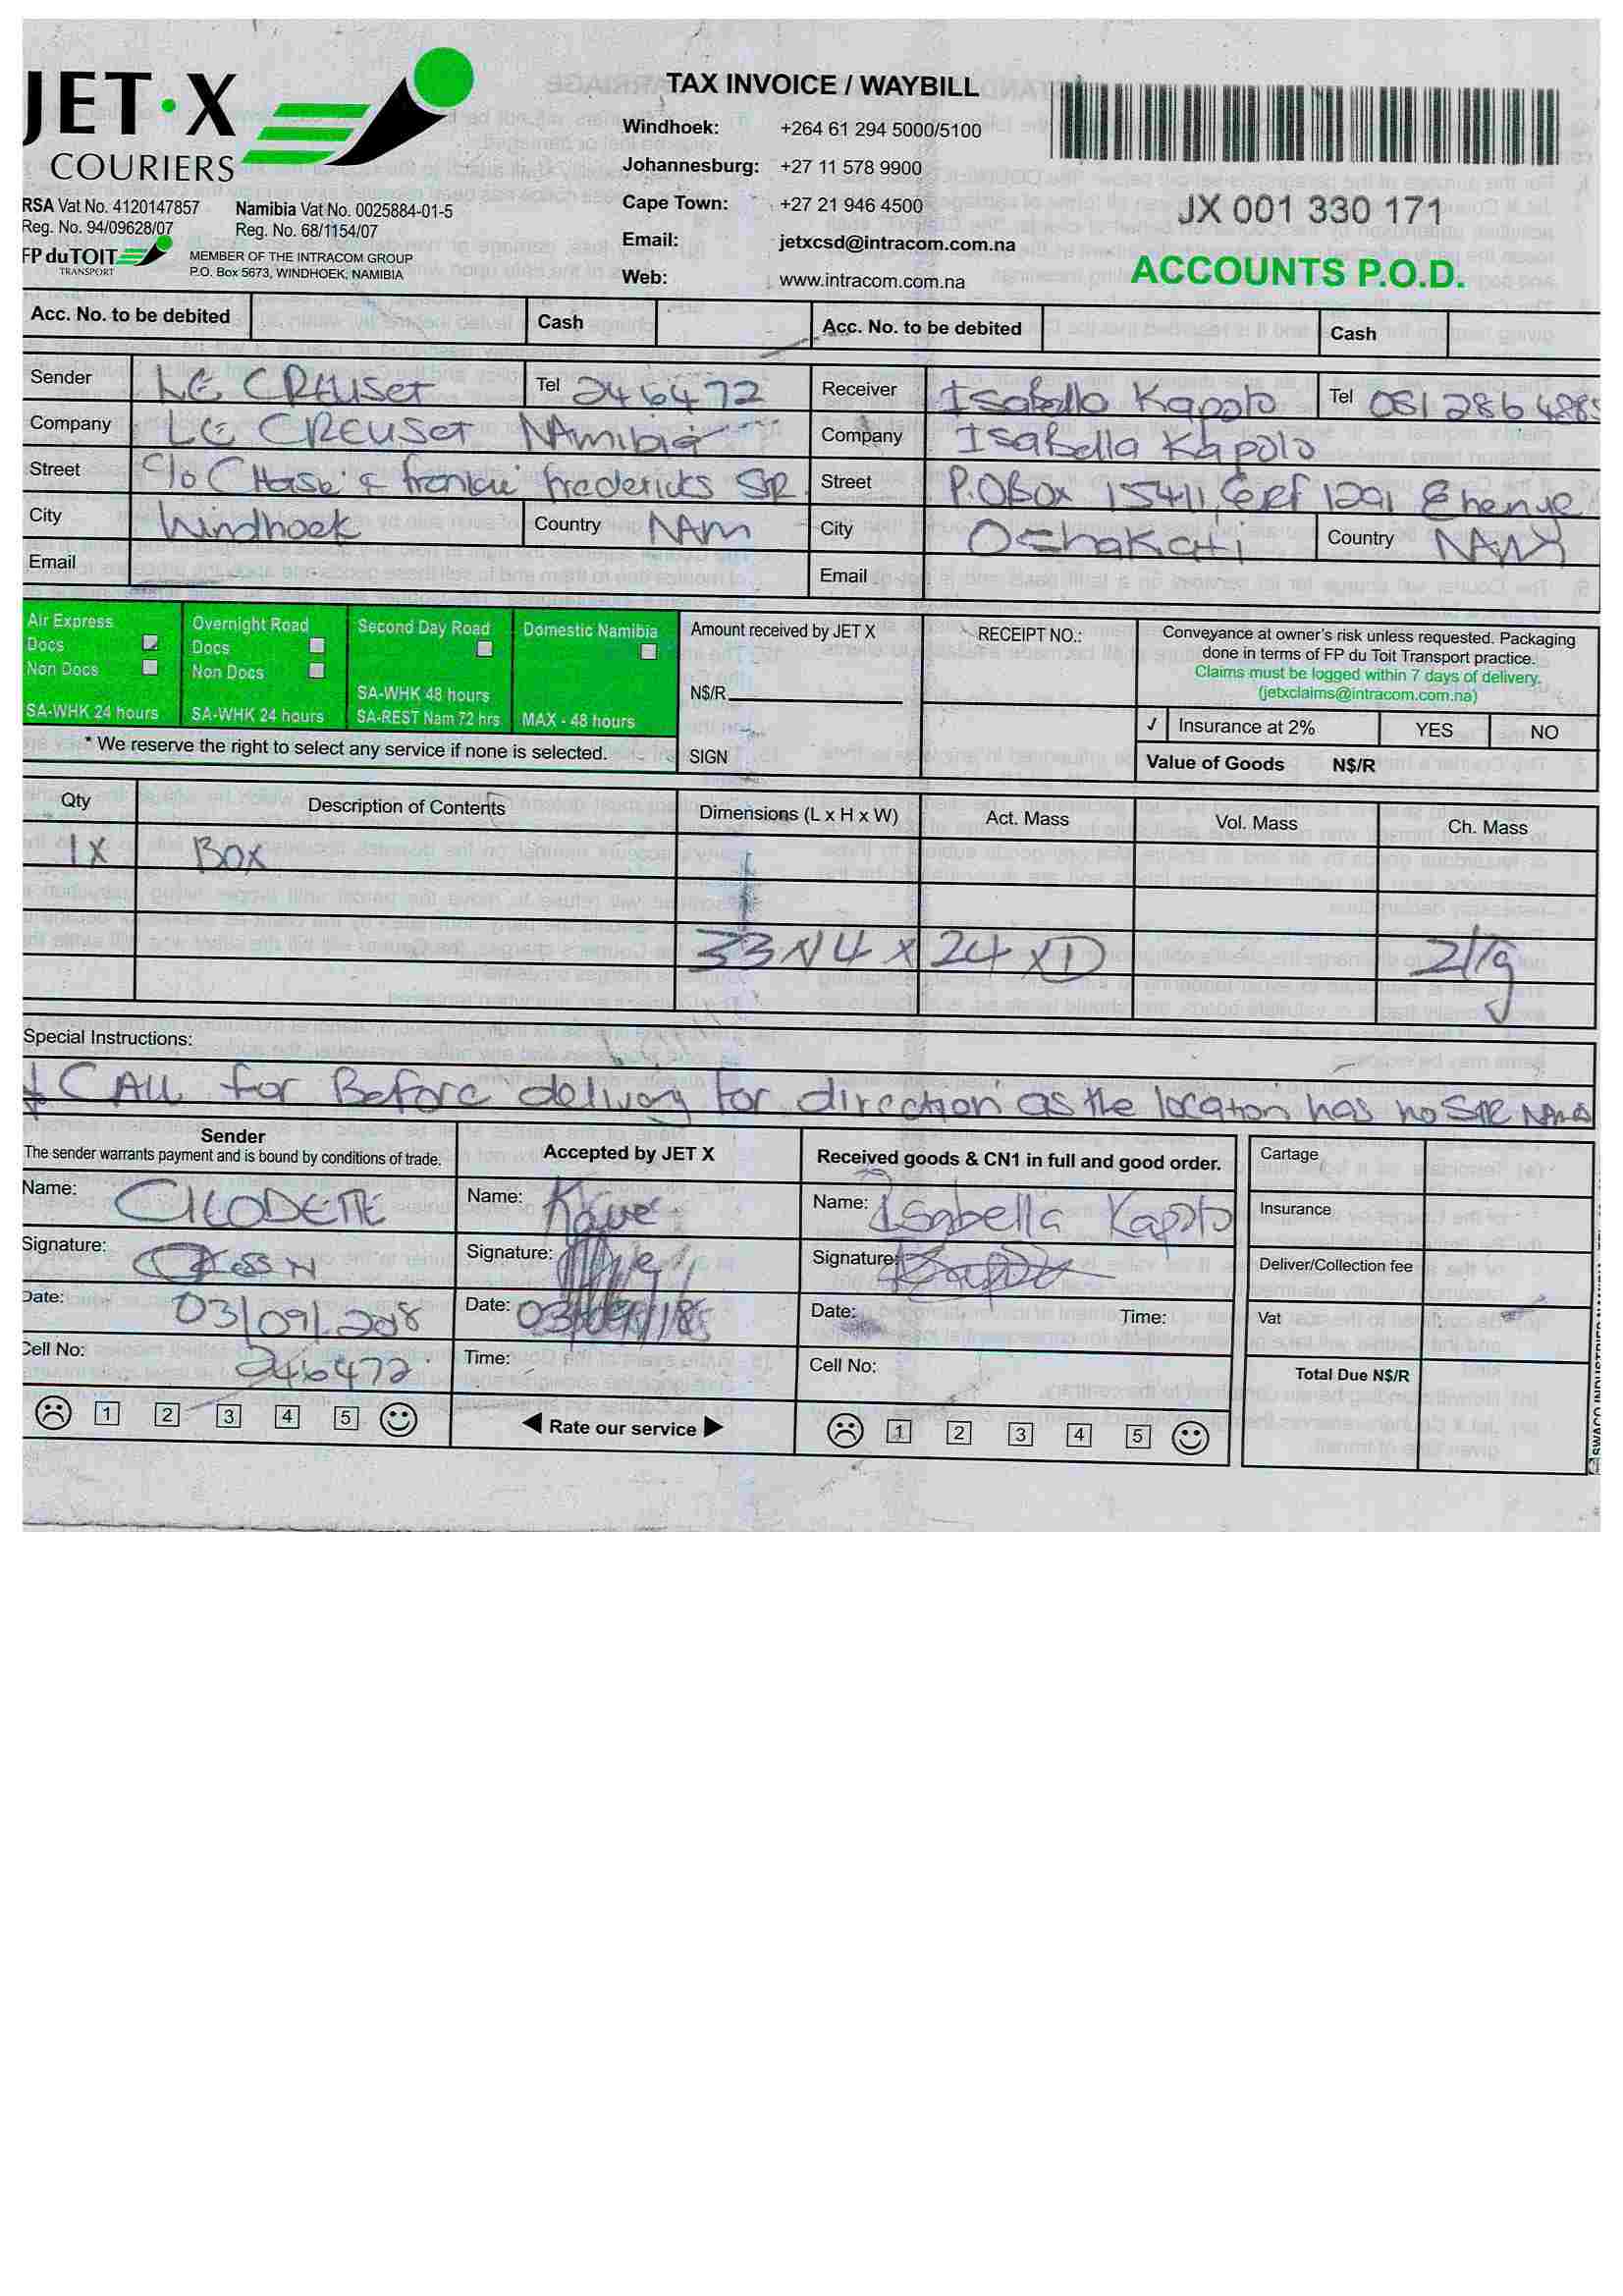 JET·X
COURIERS
RSA Vat No. 4120147857
Reg. No. 94/09628/07
Namibia Vat No. 0025884-01-5
Reg. No. 68/1154/07
FP du TOIT
TRANSPORT
MEMBER OF THE INTRACOM GROUP
P.O. Box 5673, WINDHOEK, NAMIBIA
TAX INVOICE / WAYBILL
Windhoek: +264 61 294 5000/5100
Johannesburg: +27 11 578 9900
Cape Town: +27 21 946 4500
Email: jetxcsd@intracom.com.na
Web: www.intracom.com.na
JX 001 330 171
ACCOUNTS P.O.D.
Acc. No. to be debited Cash Acc. No. to be debited Cash
Sender LE CREUSET Tel 246472
Company LE CREUSET NAmibia
Street C/o CHasie & frankie fredericks STR
City Windhoek Country NAM
Email
Receiver Isabella Kapolo Tel 081 286 4885
Company IsaBella Kapolo
Street P.O Box 15411, Erf 1291 Ehenye
City Oshakati Country NAM
Email
Air Express
Docs
Non Docs
SA-WHK 24 hours
Overnight Road
Docs
Non Docs
SA-WHK 24 hours
Second Day Road
SA-WHK 48 hours
SA-REST Nam 72 hrs
Domestic Namibia
MAX - 48 hours
* We reserve the right to select any service if none is selected.
Amount received by JET X
N$/R
SIGN
RECEIPT NO.:
Conveyance at owner's risk unless requested. Packaging
done in terms of FP du Toit Transport practice.
Claims must be logged within 7 days of delivery.
(jetxclaims@intracom.com.na)
✓ Insurance at 2% YES NO
Value of Goods N$/R
Qty Description of Contents Dimensions (L x H x W) Act. Mass Vol. Mass Ch. Mass
1X Box
33 N4 X 24 XD
Special Instructions:
* CALL for Before delivery for direction as the location has no STR NAmes
Sender
The sender warrants payment and is bound by conditions of trade.
Name: CHODETTE
Signature:
Date: 03/09/.2018
Cell No: 246472
1 2 3 4 5
Accepted by JET X
Name:
Signature:
Date: 03/09/18
Time:
Rate our service
Received goods & CN1 in full and good order.
Name: Isabella Kapolo
Signature:
Date: Time:
Cell No:
1 2 3 4 5
Cartage
Insurance
Deliver/Collection fee
Vat
Total Due N$/R